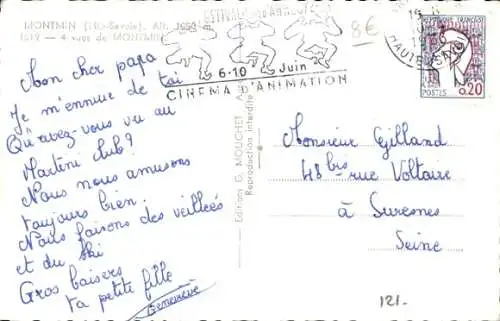 MONTMIN (Hte-Savoie), Alt. 1050 m.
1219 - 4 vues de MONTMIN
8€
6-10 Juin
CINEMA D'ANIMATION
HAUTE-SAVOIE
REPUBLIQUE FRANÇAISE
POSTES 0,20
Mon cher papa
Je m'ennuie de toi
Qu'avez-vous vu au
Martini club?
Nous nous amusons
toujours bien.
Nous faisons des veillées
et du ski
Gros baisers
Ta petite fille
Geneviève
Editions G. MOUCHET
Reproduction interdite
Monsieur Gilland
48bis rue Voltaire
à Suresnes
Seine
121-